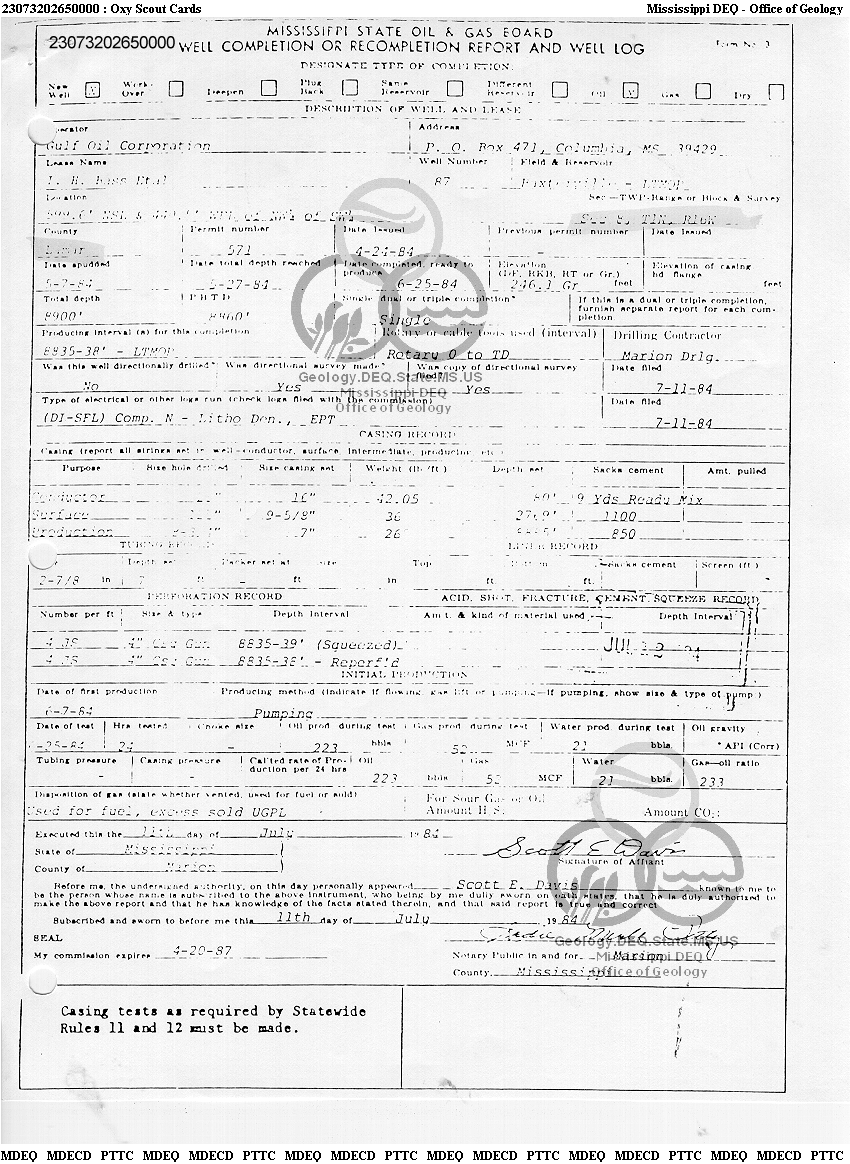 23073202650000 : Oxy Scout Cards Mississippi DEQ - Office of Geology
MISSISSIPPI STATE OIL & GAS BOARD
23073202650000 WELL COMPLETION OR RECOMPLETION REPORT AND WELL LOG Form No. 3
DESIGNATE TYPE OF COMPLETION:
New Well X Work-Over Deepen Plug Back Same Reservoir Different Reservoir Oil X Gas Dry
DESCRIPTION OF WELL AND LEASE
Operator Address
Gulf Oil Corporation P. O. Box 471, Columbia, MS 39429
Lease Name Well Number Field & Reservoir
87 Baxterville - LTMOP
Location Sec.-TWP-Range or Block & Survey
Sec 8, T1N, R16W
County Permit number Date Issued Previous permit number Date Issued
Lamar 571 4-24-84 - -
Date spudded Date total depth reached Date completed, ready to produce Elevation (DF, RKB, RT or Gr.) Elevation of casing hd flange
5-7-84 5-27-84 6-25-84 246.1 Gr feet feet
Total depth P B T D Single dual or triple completion? If this is a dual or triple completion, furnish separate report for each completion
8900' 8860' Single
Producing interval (s) for this completion Rotary or cable tools used (interval) Drilling Contractor
8835-38' - LTMOP Rotary 0 to TD Marion Drlg.
Was this well directionally drilled? Was directional survey made? Was copy of directional survey filed? Date filed
No Yes Yes 7-11-84
Type of electrical or other logs run (check logs filed with the commission) Date filed
(DI-SFL) Comp. N - Litho Den., EPT 7-11-84
Geology.DEQ.State.MS.US
Mississippi DEQ
Office of Geology
CASING RECORD
Casing (report all strings set in well-conductor, surface, intermediate, producing, etc.)
Purpose Size hole drilled Size casing set Weight (lb/ft.) Depth set Sacks cement Amt. pulled
Conductor 16" 42.05 80' 9 Yds Ready Mix
Surface 9-5/8" 36 1100
Production 7" 26 850
TUBING RECORD LINER RECORD
Depth set Packer set at Size Top Bottom Sacks cement Screen (ft.)
2-7/8 in ft. - ft in ft. ft. -
PERFORATION RECORD ACID, SHOT, FRACTURE, CEMENT SQUEEZE RECORD
Number per ft Size & type Depth Interval Amt. & kind of material used Depth Interval
4 JS 4" Csg Gun 8835-39' (Squeezed)
4 JS 4" Csg Gun 8835-38' - Reperf'd
INITIAL PRODUCTION
Date of first production Producing method (Indicate if flowing, gas lift or pumping-if pumping, show size & type of pump.)
6-7-84 Pumping
Date of test Hrs tested Choke size Oil prod. during test Gas prod. during test Water prod. during test Oil gravity
-25-84 24 - 223 bbls 52 MCF 21 bbls. ° API (Corr)
Tubing pressure Casing pressure Cal'ted rate of Production per 24 hrs Oil Gas Water Gas-oil ratio
- - 223 bbls 52 MCF 21 bbls. 233
Disposition of gas (state whether vented, used for fuel or sold) For Sour Gas or Oil
Used for fuel, excess sold UGPL Amount H2S Amount CO2:
Executed this the 11th day of July 1984
State of Mississippi Scott E Davis
Signature of Affiant
County of Marion
Before me, the undersigned authority, on this day personally appeared Scott E. Davis known to me to
be the person whose name is subscribed to the above instrument, who being by me duly sworn on oath states, that he is duly authorized to
make the above report and that he has knowledge of the facts stated therein, and that said report is true and correct
Subscribed and sworn to before me this 11th day of July 1984
SEAL
Geology.DEQ.State.MS.US
My commission expires 4-20-87 Notary Public in and for Marion
Mississippi DEQ
County, Mississippi
Office of Geology
Casing tests as required by Statewide
Rules 11 and 12 must be made.
MDEQ MDECD PTTC MDEQ MDECD PTTC MDEQ MDECD PTTC MDEQ MDECD PTTC MDEQ MDECD PTTC MDEQ MDECD PTTC